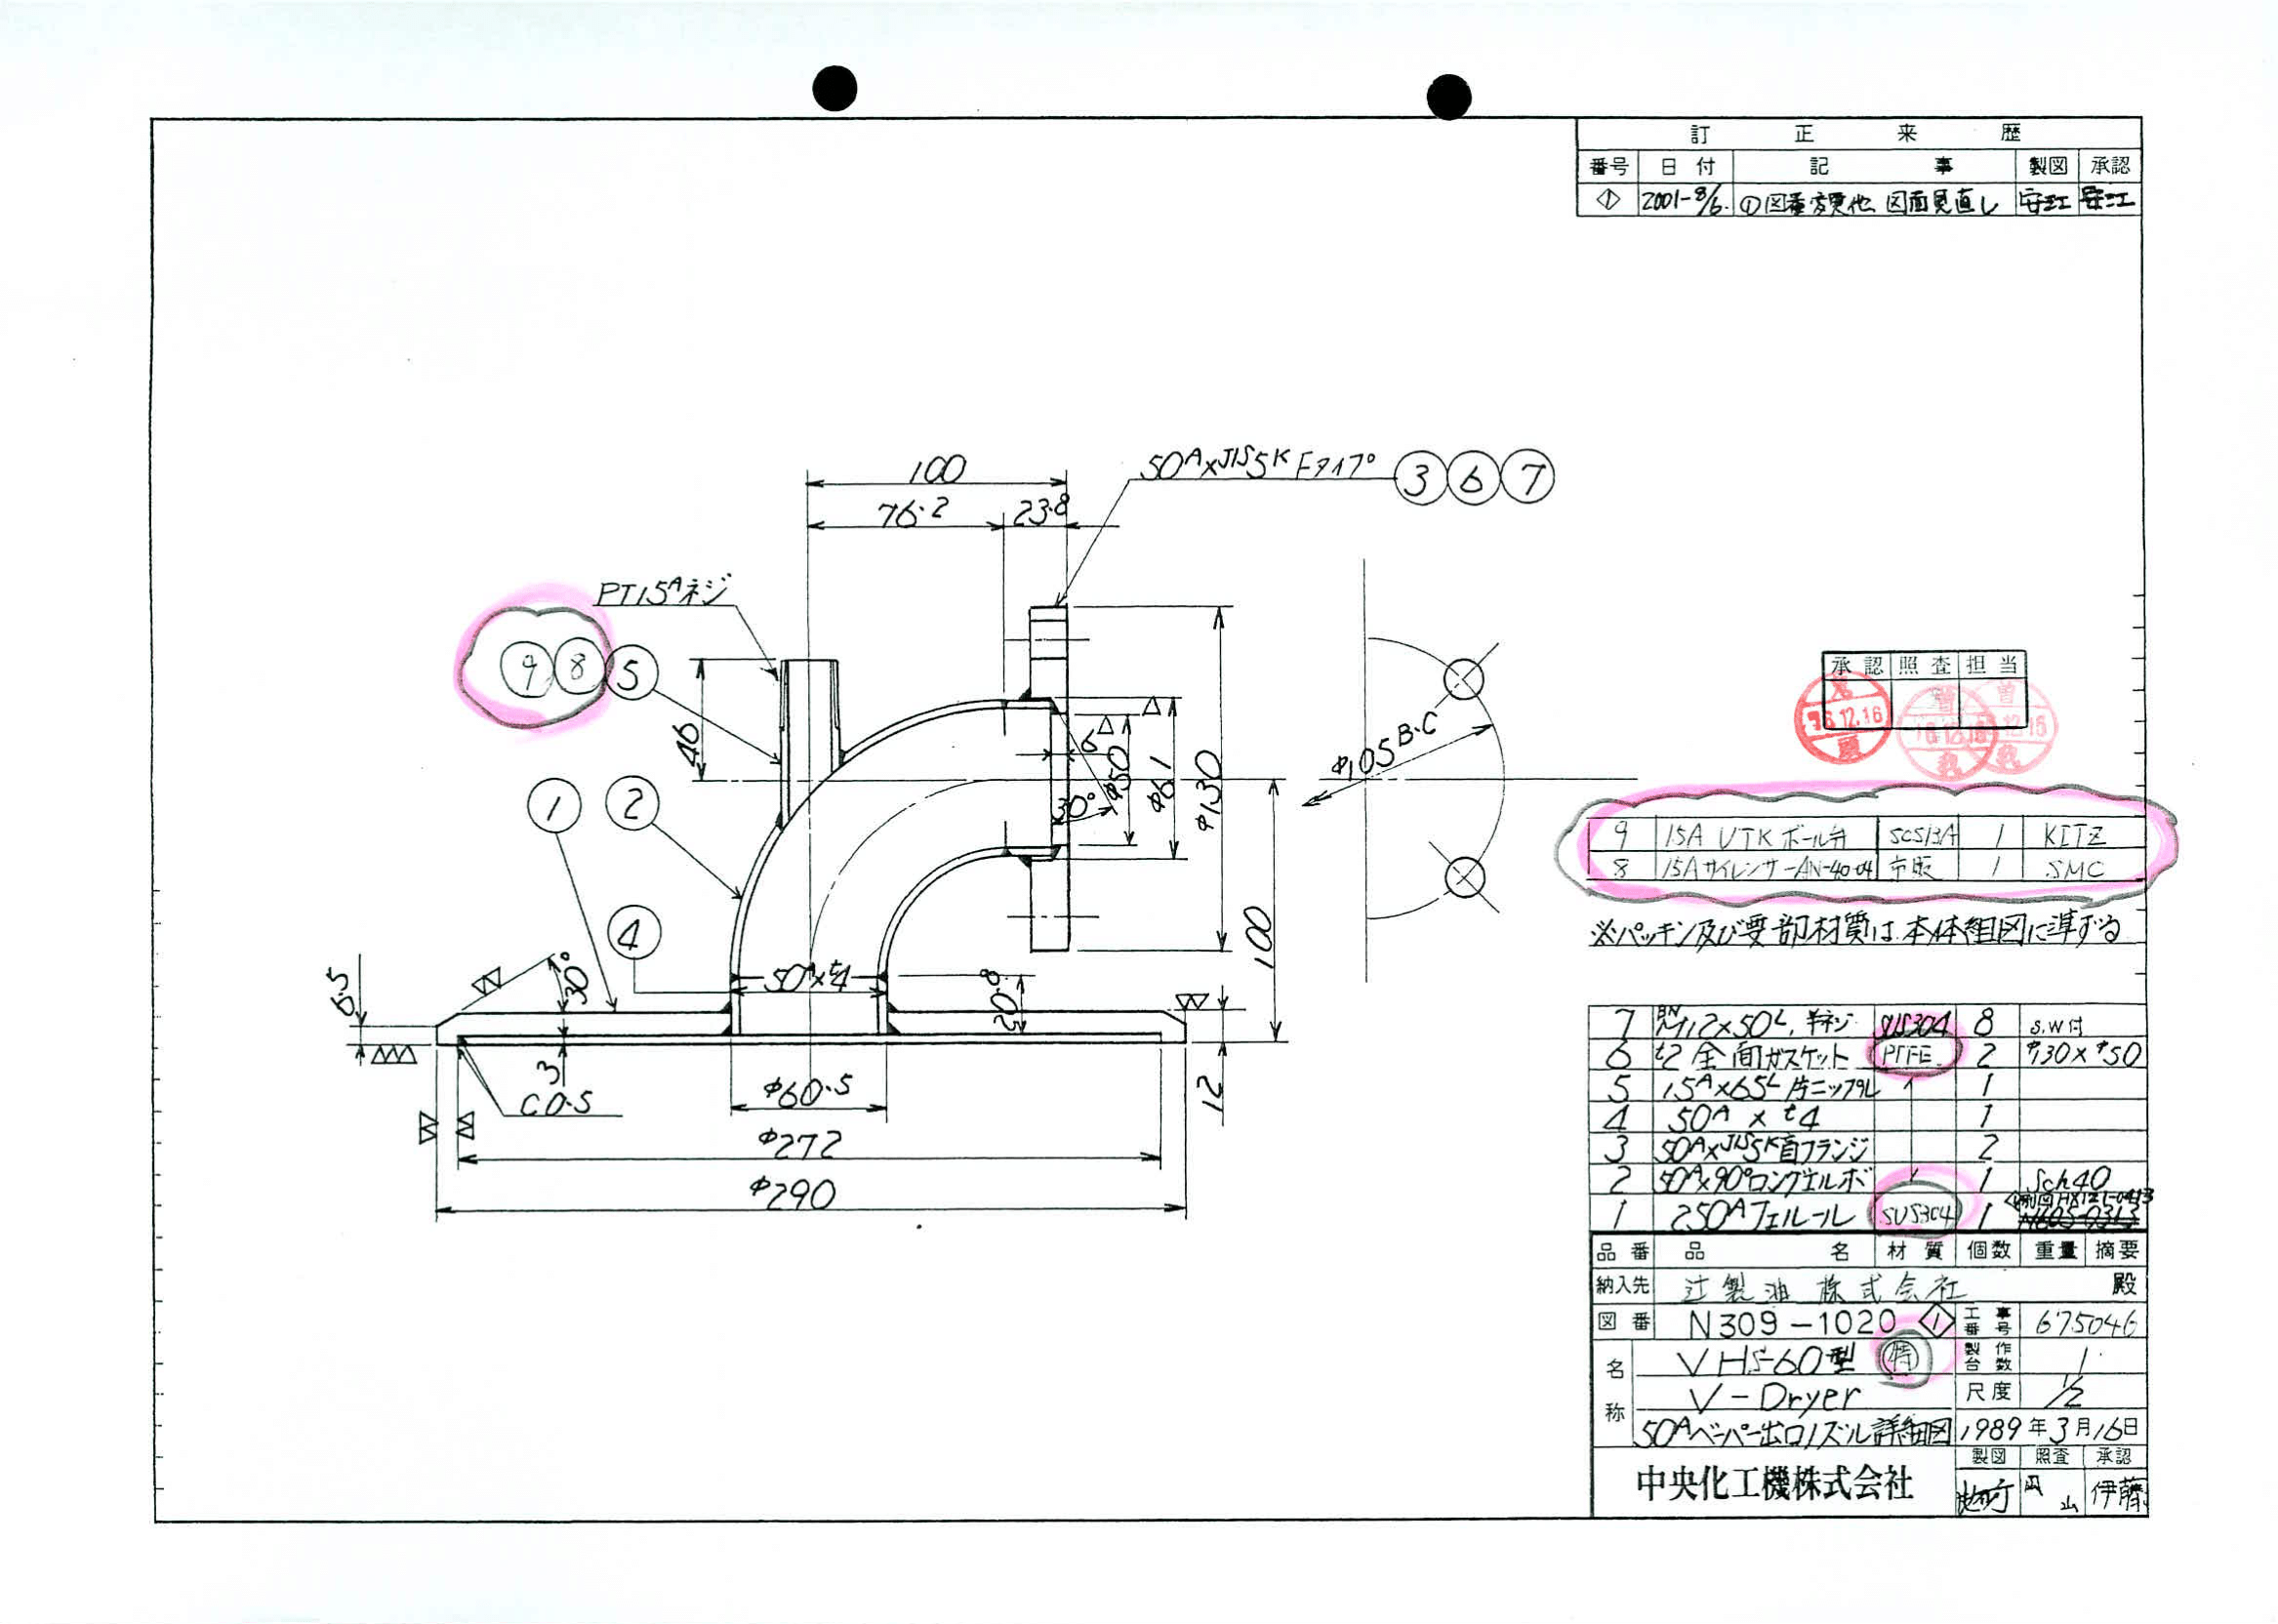 訂正来歴
番号 日付 記事 製図 承認
1 2001-8/6. ①図番変更他、図面見直し 安江 安江
100
50A×JIS5K Fタイプ 3 6 7
76.2 23.8
PT15Aネジ
9 8 5
46
1 2
4
φ105 B.C
6
φ50
φ61
φ130
30°
100
6.5
30°
50A×t4
20.8
3
C0.5
φ60.5
12
φ272
φ290
承認 照査 担当
9 15A UTKボール弁 SCS13A 1 KITZ
8 15Aサイレンサー AN-40-04 市販 1 SMC
※パッキン及び要部材質は本体組図に準ずる
7 BN M12×50L, 半ネジ SUS304 8 S.W付
6 t2 全面ガスケット PTFE 2 φ130×φ50
5 15A×65L 片ニップル 1
4 50A × t4 1
3 50A×JIS5K盲フランジ 2
2 50A×90°ロングエルボ 1 Sch40
1 250Aフェルール SUS304 1
品番 品名 材質 個数 重量 摘要
納入先 辻製油株式会社 殿
図番 N309-1020 1 工事番号 675046
名称 VHS-60型 特 製作台数 1
V-Dryer 尺度 1/2
50Aベーパー出口ノズル詳細図 1989年3月16日
製図 照査 承認
中央化工機株式会社 伊藤